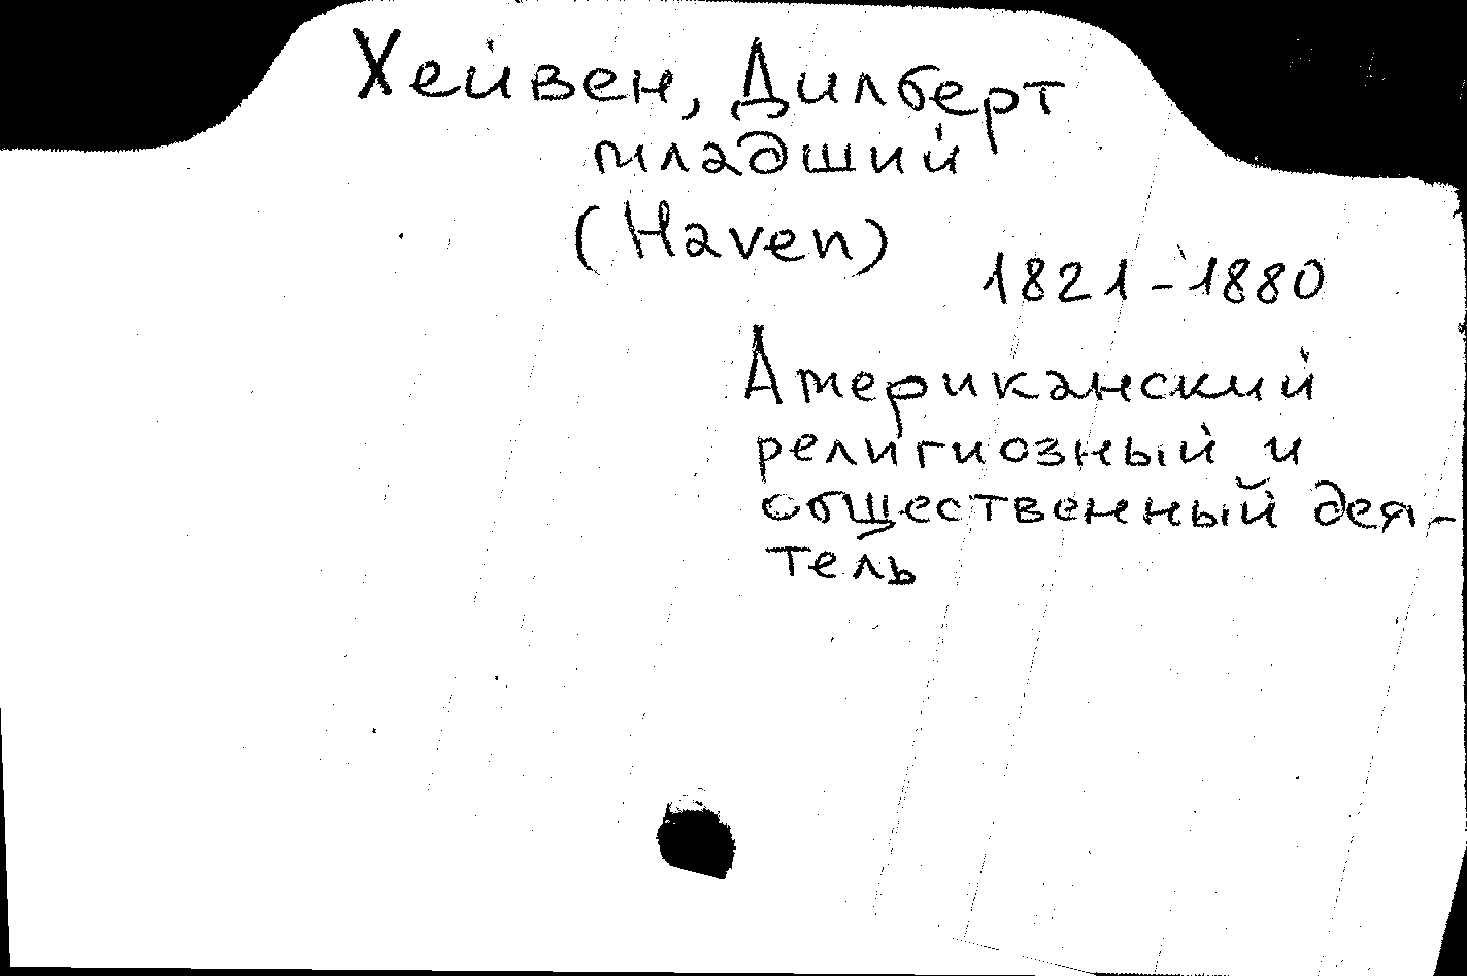 Хейвен, Дилберт
младший
(Haven)
1821-1880
Американский
религиозный и
общественный дея-
тель